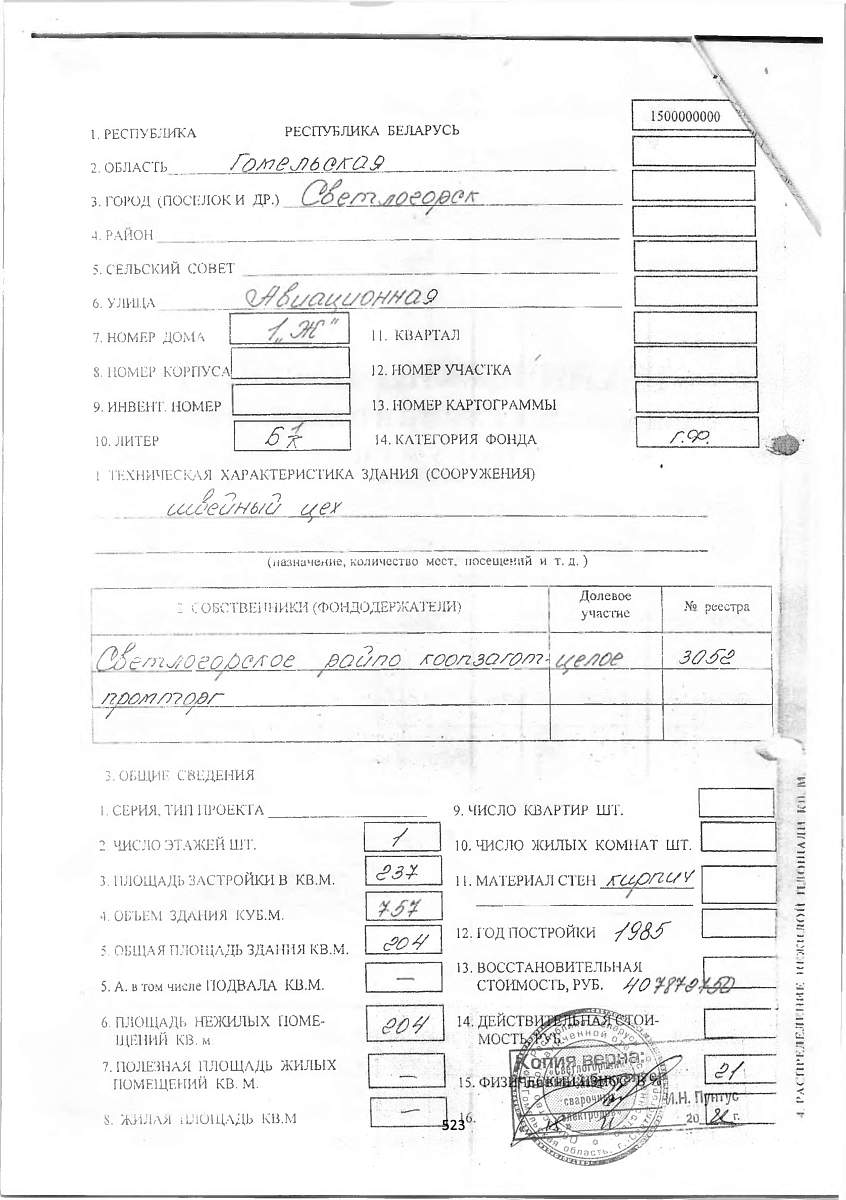 1. РЕСПУБЛИКА РЕСПУБЛИКА БЕЛАРУСЬ 1500000000
2. ОБЛАСТЬ Гомельская
3. ГОРОД (ПОСЕЛОК И ДР.) Светлогорск
4. РАЙОН
5. СЕЛЬСКИЙ СОВЕТ
6. УЛИЦА Авиационная
7. НОМЕР ДОМА 1„Ж" 11. КВАРТАЛ
8. НОМЕР КОРПУСА 12. НОМЕР УЧАСТКА
9. ИНВЕНТ. НОМЕР 13. НОМЕР КАРТОГРАММЫ
10. ЛИТЕР Б 1/к 14. КАТЕГОРИЯ ФОНДА г.ф.
1 ТЕХНИЧЕСКАЯ ХАРАКТЕРИСТИКА ЗДАНИЯ (СООРУЖЕНИЯ)
швейный цех
(назначение, количество мест, посещений и т. д. )
2 СОБСТВЕННИКИ (ФОНДОДЕРЖАТЕЛИ) Долевое участие № реестра
Светлогорское райпо коопзагот- целое 3052
промторг
3. ОБЩИЕ СВЕДЕНИЯ
1. СЕРИЯ, ТИП ПРОЕКТА 9. ЧИСЛО КВАРТИР ШТ.
2 ЧИСЛО ЭТАЖЕЙ ШТ. 1 10. ЧИСЛО ЖИЛЫХ КОМНАТ ШТ.
3. ПЛОЩАДЬ ЗАСТРОЙКИ В КВ.М. 237 11. МАТЕРИАЛ СТЕН кирпич
4. ОБЪЕМ ЗДАНИЯ КУБ.М. 757
12. ГОД ПОСТРОЙКИ 1985
5. ОБЩАЯ ПЛОЩАДЬ ЗДАНИЯ КВ.М. 204
13. ВОССТАНОВИТЕЛЬНАЯ
5. А. в том числе ПОДВАЛА КВ.М. — СТОИМОСТЬ, РУБ. 407872750
6. ПЛОЩАДЬ НЕЖИЛЫХ ПОМЕ- 204 14. ДЕЙСТВИТЕЛЬНАЯ СТОИ-
ЩЕНИЙ КВ. м МОСТЬ, РУБ.
Копия верна:
7. ПОЛЕЗНАЯ ПЛОЩАДЬ ЖИЛЫХ — 15. ФИЗИЧЕСКИЙ ИЗНОС В % 21
ПОМЕЩЕНИЙ КВ. М.
И.Н. Пунтус
8. ЖИЛАЯ ПЛОЩАДЬ КВ.М — 16.
523
4. РАСПРЕДЕЛЕНИЕ НЕЖИЛОЙ ПЛОЩАДИ КВ. М.